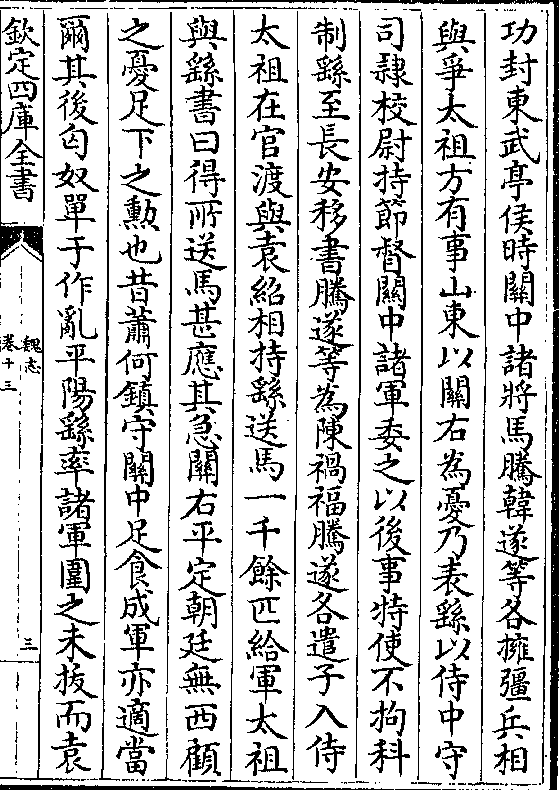 功封東武亭侯時關中諸將馬騰韓遂等各擁彊兵相
與爭太祖方有事山東以關右為憂乃表繇以侍中守
司隷校尉持節督關中諸軍委之以後事特使不拘科
制繇至長安移書騰遂等為陳禍福騰遂各遣子入侍
太祖在官渡與袁紹相持繇送馬一千餘匹給軍太祖
與繇書曰得所送馬甚應其急關右平定朝廷無西顧
之憂足下之勲也昔蕭何鎮守關中足食成軍亦適當
爾其後匈奴單于作亂平陽繇率諸軍圍之未拔而袁
欽定四庫全書
魏志
卷十三
三